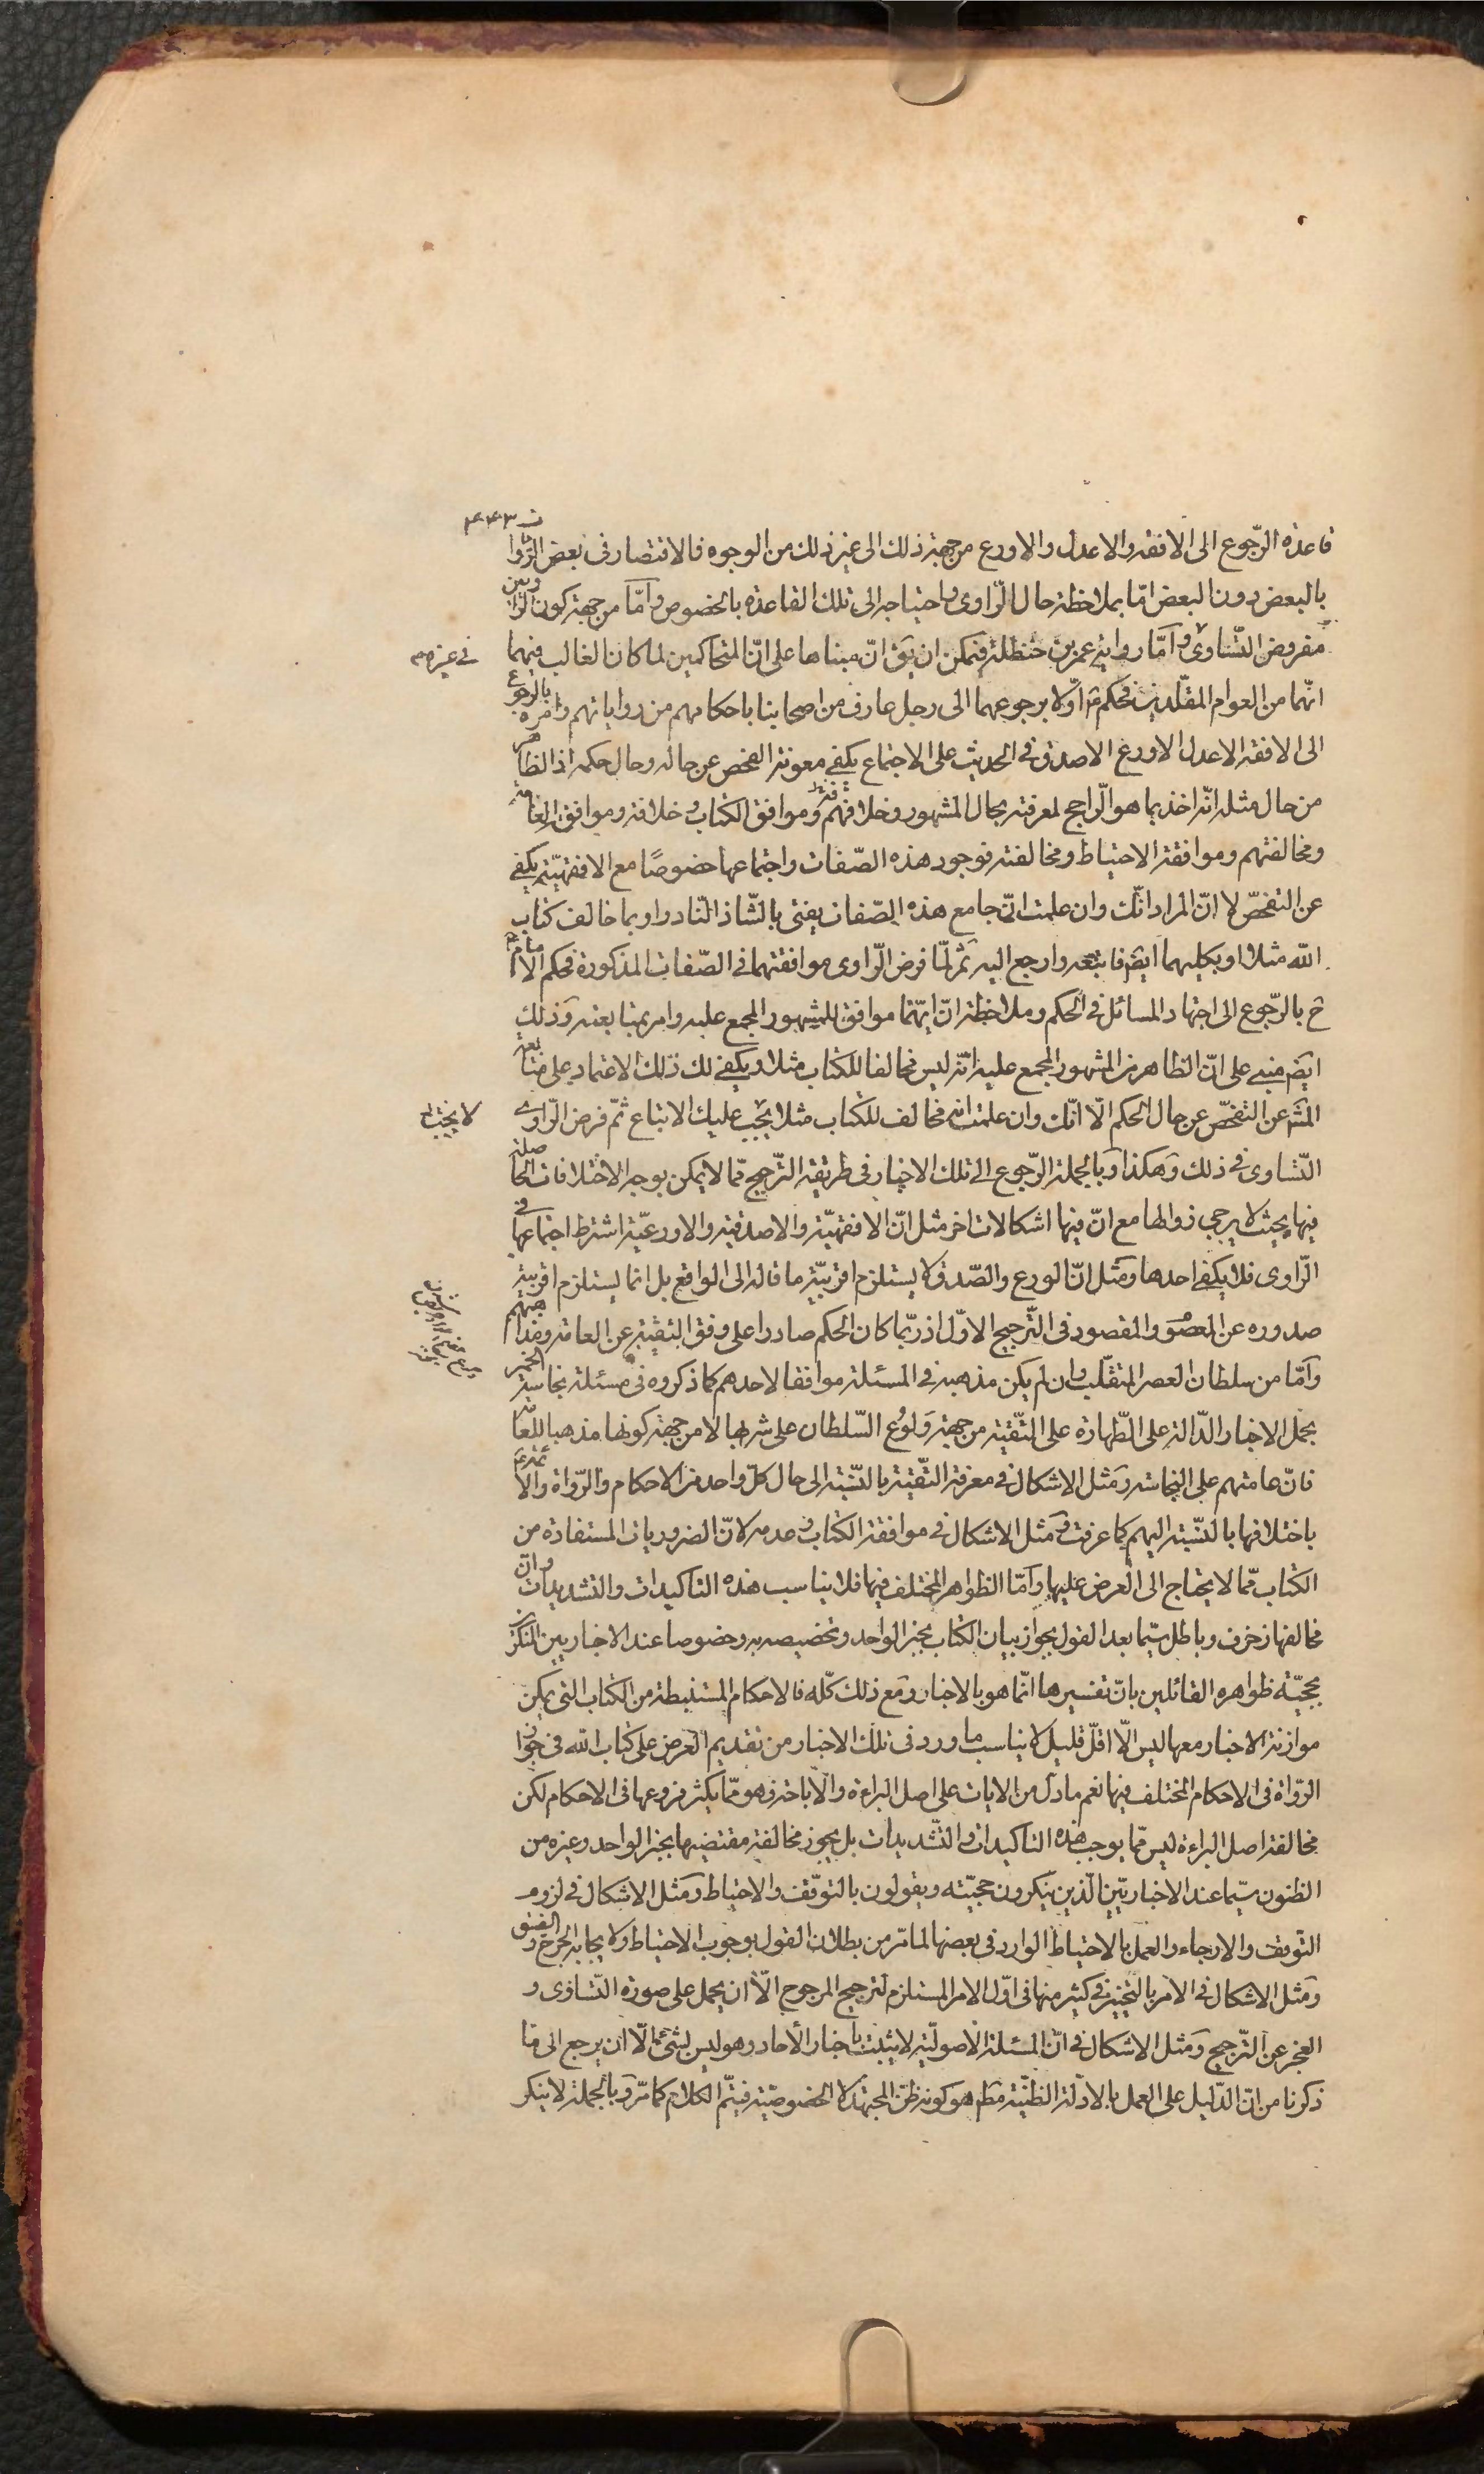 ت ۴۴۳
قاعدة الرّجوع الى الافقه والاعدل والاورع من جهة ذلك الى غير ذلك من الوجوه فالاقتصار فى بعض الرّوايات
بالبعض دون البعض امّا بملاحظة حال الرّاوى واحتياجه الى تلك القاعدة بالخصوص وامّا من جهة كون الراويين
مفروض التّساوى وامّا رواية عمر بن حنظلة فيمكن ان يق انّ مبناها على انّ المتحاكمين لما كان الغالب فيهما
فى غيره
انّهما من العوام المقلّدين فحكم ع اوّلا برجوعهما الى رجل عارف من اصحابنا باحكامهم من رواياتهم وامره بالرجوع
الى الافقه الاعدل الاورع الاصدق فى الحديث على الاجتماع يكفى معونة الفحص عن حاله وحال حكمه اذ الظاهر
من حال مثله انّه اخذ بما هو الرّاجح لمعرفته بحال المشهور وخلافهم وموافق الكتاب وخلافه وموافقة العامة
ومخالفتهم وموافقة الاحتياط ومخالفته فوجود هذه الصّفات واجتماعها خصوصًا مع الافقهيّة يكفى
عن التفحّص لا انّ المراد انّك وان علمت انّ جامع هذه الصّفات يفتى بالشّاذ النّادر او بما خالف كتاب
اللّه مثلا او بكليهما ايضَ فاتبعه وارجع اليه ثمّ لمّا فرض الرّاوى موافقتهما فى الصّفات المذكورة فحكم الامام ع
ح بالرّجوع الى اجتهاد المسائل فى الحكم وملاحظة انّ ايّهما موافق للمشهور المجمع عليه وامر بمتابعته وذلك
ايضَ مبنى على انّ الظاهر من المشهور المجمع عليه انّه ليس مخالفا للكتاب مثلا ويكفى لك ذلك الاعتماد على متابعة
المشَ عن التفحّص عن حال الحكم الّا انّك وان علمت انه مخالف للكتاب مثلا يجب عليك الاتباع ثمّ فرض الرّاوى
لا يجب
التّساوى فى ذلك وهكذا وبالجملة الرّجوع الى تلك الاخبار فى طريقة التّرجيح ممّا لا يمكن بوجه الاختلافات الحاصلة
فيها بحيث لا يرجى زوالها مع انّ فيها اشكالات اخر مثل انّ الافقهيّة والاصدقية والاورعيّة اشترط اجتماعها فى
الرّاوى فلا يكفى احدها ومثل انّ الورع والصّدق لا يستلزم اقربيّة ما قاله الى الواقع بل انما يستلزم اقربية
صدوره عن المعصوم والمقصود فى التّرجيح الاوّل اذ ربّما كان الحكم صادرا على وفق التقيّة عن العامة ومذاهبهم
وامّا من سلطان العصر المتغلّب وان لم يكن مذهبه فى المسئلة موافقا لاحدهم كما ذكروه فى مسئلة نجاسة الخمر
بحمل الاخبار الدّالة على الطّهارة على التّقيّة من جهة ولوع السّلطان على شربها لا من جهة كونها مذهبا للعامّة
فانّ عامتهم على النجاسة ومثل الاشكال فى معرفة التّقيّة بالنّسبة الى حال كلّ واحد من الاحكام والرّواة والائمة ع
باختلافها بالنّسبة اليهم كما عرفت ومثل الاشكال فى موافقة الكتاب وعدمه لانّ الضروريات المستفادة من
الكتاب ممّا لا يحتاج الى العرض عليها وامّا الظواهر المختلف فيها فلا يناسب هذه التاكيدات والتشديدات وانّ
مخالفها زخرف وباطل سيّما بعد القول بجواز بيان الكتاب بخبر الواحد وتخصيصه به وخصوصا عند الاخباريين المنكرين
بحجيّة ظواهره القائلين بانّ تفسيرها انّما هو بالاخبار ومع ذلك كلّه فالاحكام المستنبطة من الكتاب التى يمكن
موازنة الاخبار معها ليس الّا اقلّ قليل لا يناسب ما ورد فى تلك الاخبار من تقديم العرض على كتاب اللّه فى جواب
الرّواة فى الاحكام المختلف فيها نعم ما دل من الايات على اصل البراءة والاباحة فهو ممّا يكثر فروعها فى الاحكام لكن
مخالفة اصل البراءة ليس ممّا يوجب هذه التاكيدات والتّشديدات بل يجوز مخالفة مقتضيها بخبر الواحد وغيره من
الظنون سيّما عند الاخباريّين الّذين ينكرون حجيّته ويقولون بالتوقّف والاحتياط ومثل الاشكال فى لزوم
التوقف والارجاء والعمل بالاحتياط الوارد فى بعضها لما مرّ من بطلان القول بوجوب الاحتياط ولايجابه الحرج والضيق
ومثل الاشكال فى الامر بالتخيير فى كثير منها فى اوّل الامر المستلزم لترجيح المرجوح الّا ان يحمل على صورة التّساوى و
العجز عن التّرجيح ومثل الاشكال فى انّ المسئلة الاصوليّة لا يثبت باخبار الأحاد وهو ليس بشئ الّا ان يرجع الى ما
ذكرنا من انّ الدّليل على العمل بالادلّة الظنّية مطَ هو كونه ظنّ المجتهد لا الخصوصيّة فيتمّ الكلام كما مرّ وبالجملة لا ينكر